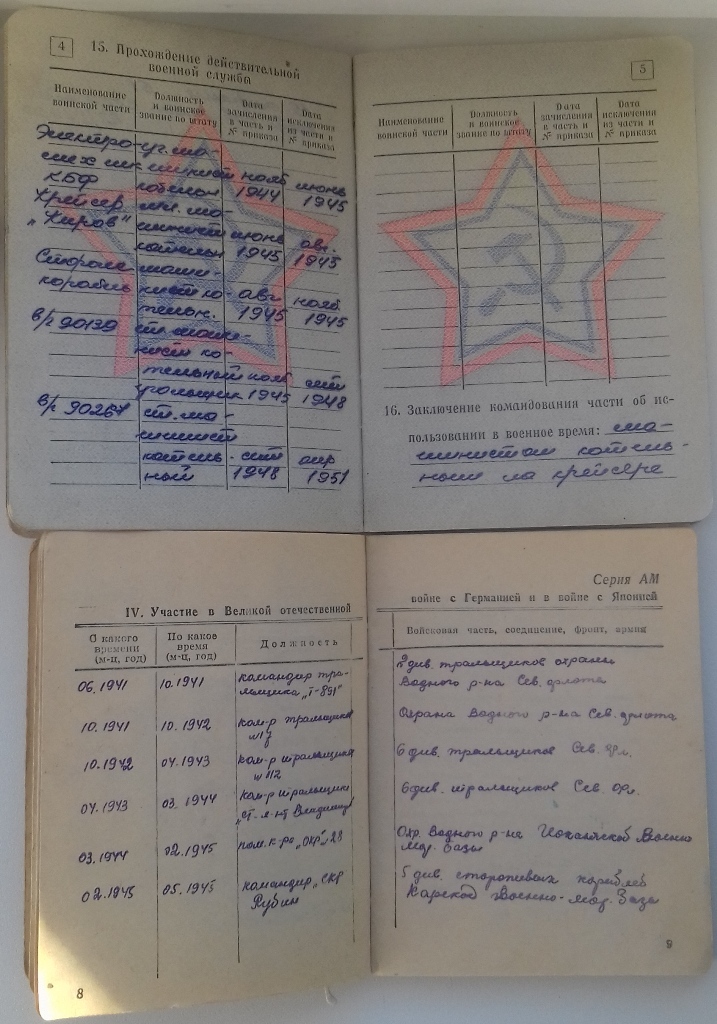 4
15. Прохождение действительной
военной службы
Наименование
воинской части
Должность
и воинское
звание по штату
Дата
зачисления
в часть и
№ приказа
Дата
исключения
из части и
№ приказа
Электро-
мех шк машинист нояб июнь
КБФ котельн 1944 1945
Крейсер ма-
„Киров" шинист июнь авг.
котельн 1945 1945
Сторож маши-
корабль нист ко- авг нояб
тельн. 1945 1945
в/ч 90139 ст. маши-
нист ко-
тельный нояб
1945 1948
в/ч 90261 ст. ма-
шинист
котель-
ный 1948 1951
5
Наименование
воинской части
Должность
и воинское
звание по штату
Дата
зачисления
в часть и
№ приказа
Дата
исключения
из части и
№ приказа
16. Заключение командования части об ис-
пользовании в военное время: ма-
шинистом котель-
ным на крейсере
IV. Участие в Великой отечественной
С какого
времени
(м-ц, год)
По какое
время
(м-ц, год)
Должность
06.1941 10.1941 командир тра-
льщика „Т-891"
10.1941 10.1942 ком-р тральщика
№17
10.1942 04.1943 ком-р тральщика
№ 112
04.1943 03.1944 ком-р тральщика
„ст. л-нт Владимиров"
03.1944 02.1945 пом. к-ра „СКР" 28
02.1945 05.1945 командир „СКР
Рубин
8
Серия АМ
войне с Германией и в войне с Японией
Войсковая часть, соединение, фронт, армия
2 див. тральщиков охраны
Водного р-на Сев. флота
Охрана Водного р-на Сев. флота
6 див. тральщиков Сев. фл.
6 див. тральщиков Сев. фл.
Охр. Водного р-на Иоканьской Военно
Мор. базы
5 див. сторожевых кораблей
Карской Военно-Мор. Базы
9